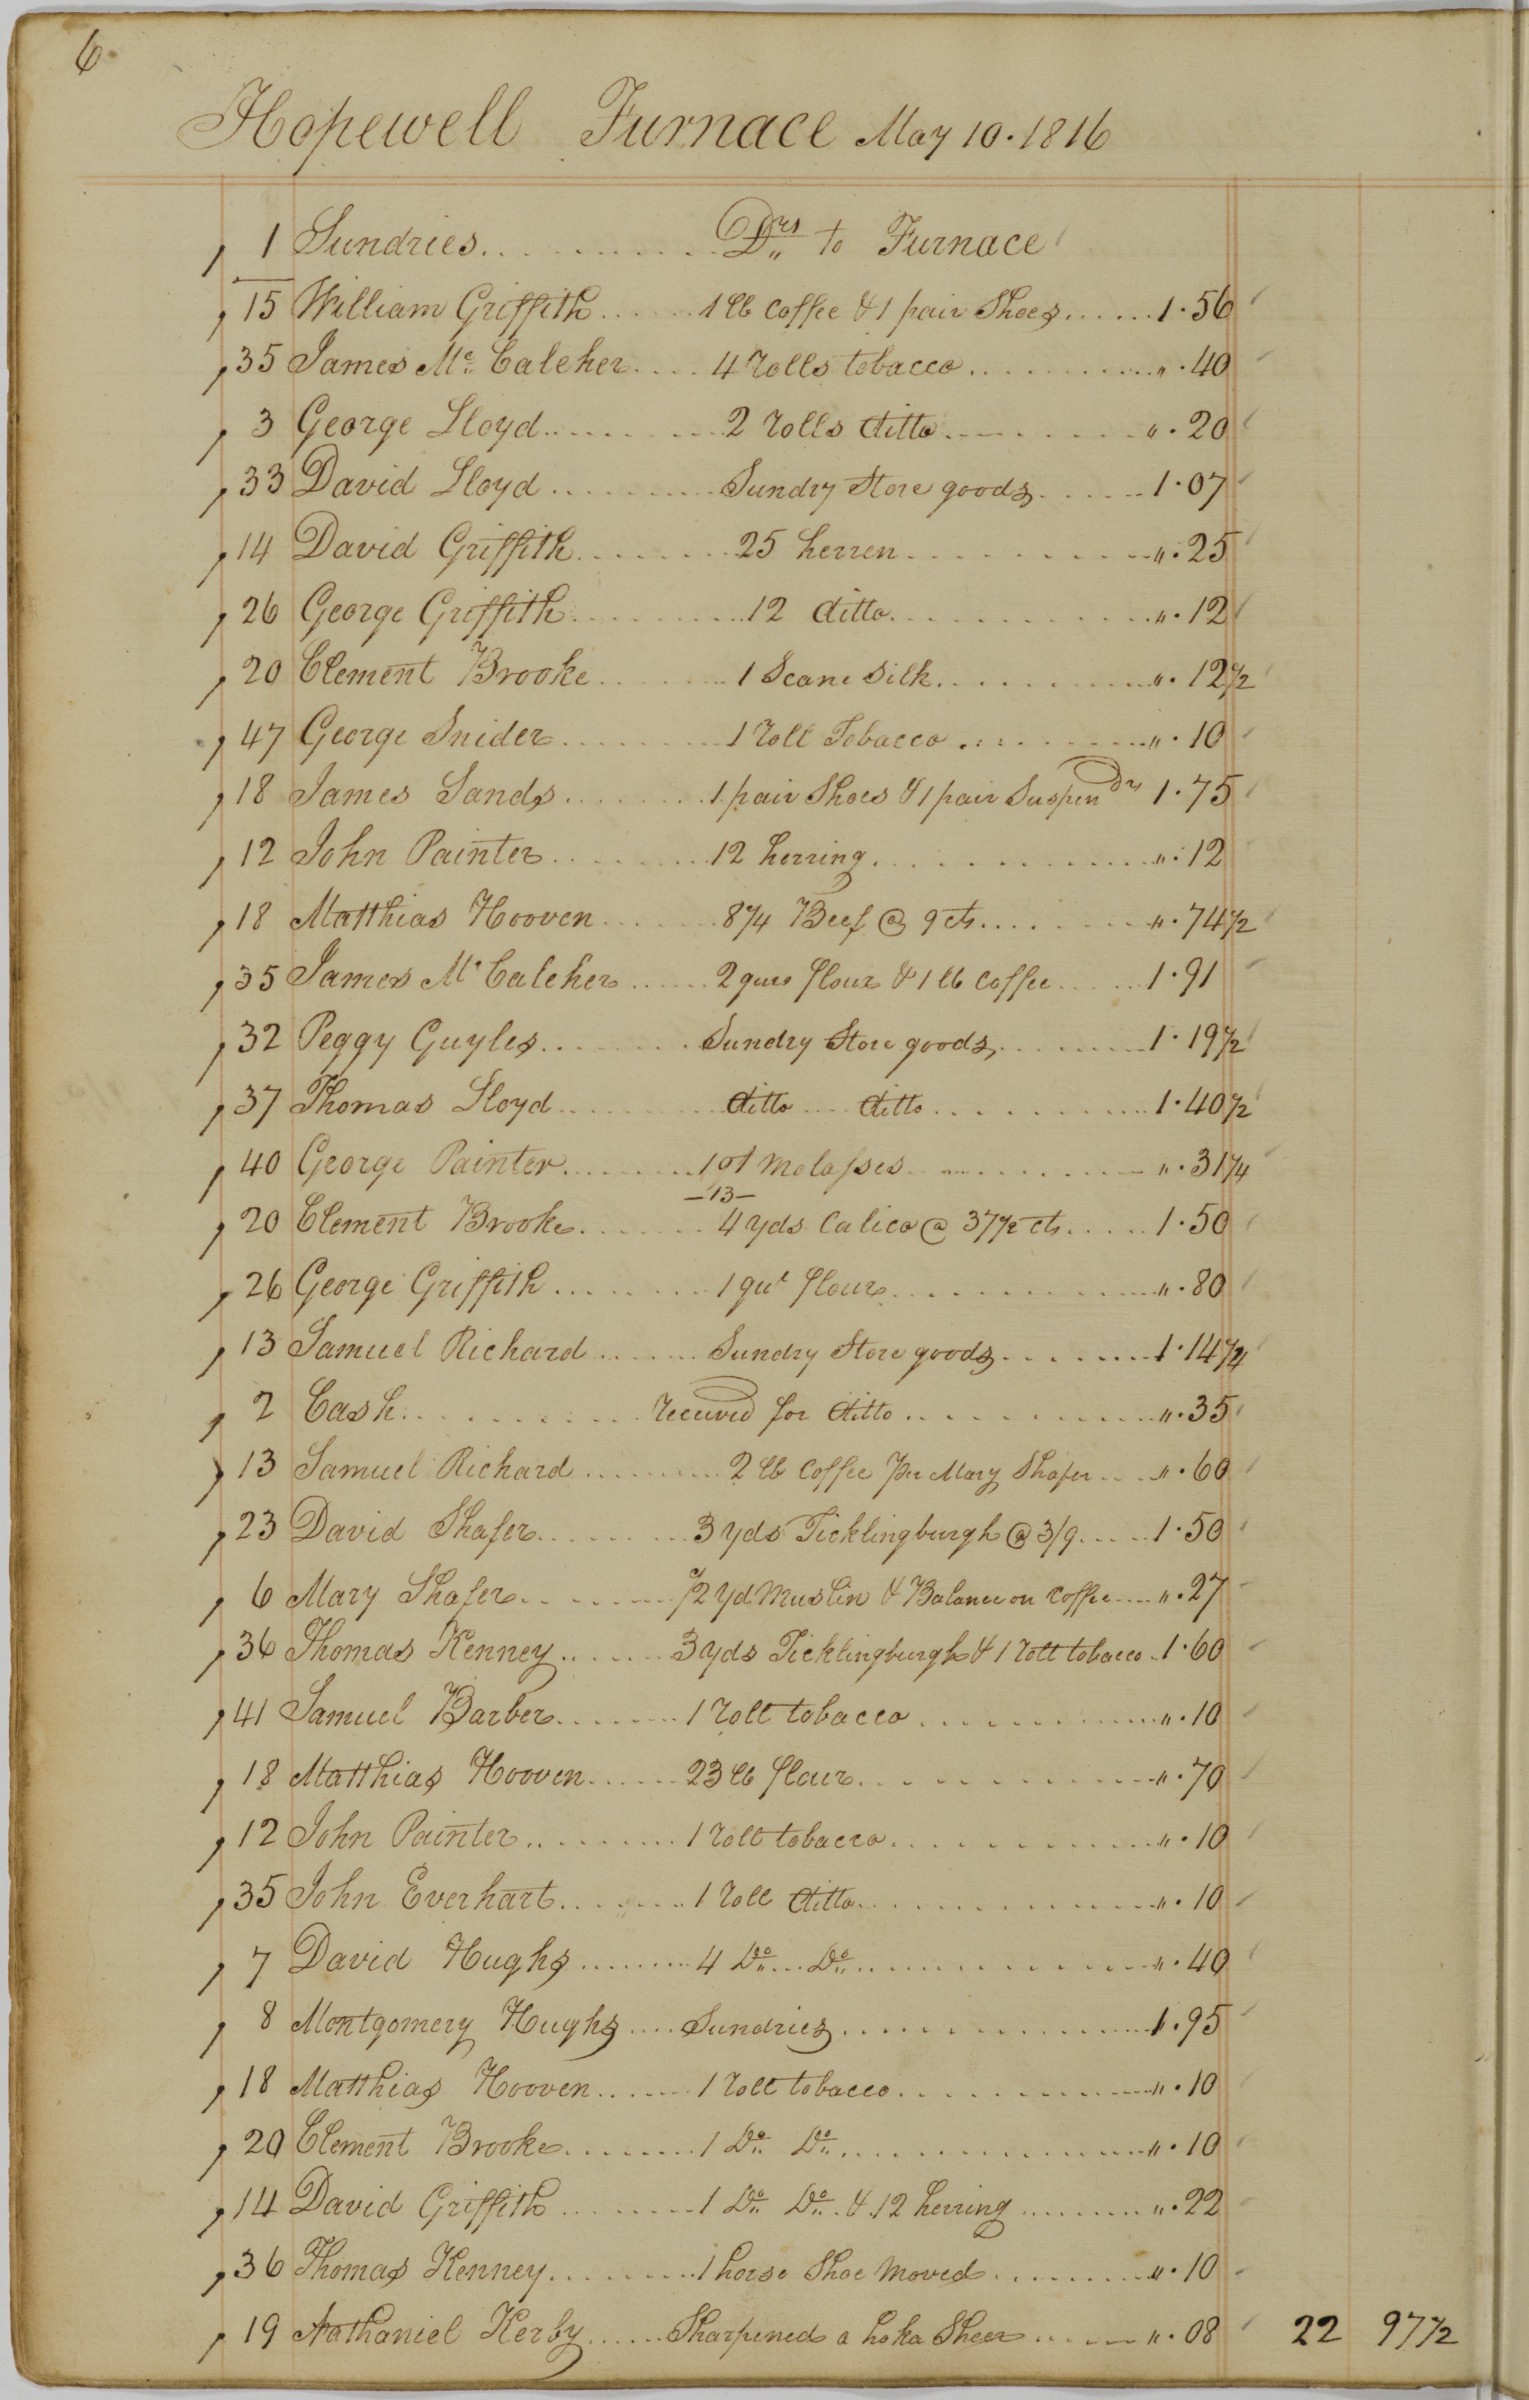 6
Hopewell Furnace May 10.1816
1 Sundries Drs to Furnace
15 William Griffith 1 lb Coffee & 1 pair Shoes 1.56
35 James Mc Caleher 4 rolls tobacco ".40
3 George Lloyd 2 rolls ditto ".20
33 David Lloyd Sundry Store goods 1.07
14 David Griffith 25 herren ".25
26 George Griffith 12 ditto ".12
20 Clement Brooke 1 Scane Silk ".12½
47 George Snider 1 roll Tobacco ".10
18 James Sands 1 pair Shoes & 1 pair Suspendrs 1.75
12 John Painter 12 herring ".12
18 Matthias Hooven 8¼ Beef @ 9 cts ".74½
35 James Mc Caleher 2 qurs flour & 1 lb Coffee 1.91
32 Peggy Guyles Sundry Store goods 1.19½
37 Thomas Lloyd ditto ditto 1.40½
40 George Painter 1 qt Molasses ".31¼
-13-
20 Clement Brooke 4 yds Calico @ 37½ cts 1.50
26 George Griffith 1 qur flour ".80
13 Samuel Richard Sundry Store goods 1.14½
2 Cash received for ditto ".35
13 Samuel Richard 2 lb Coffee per Mary Shafer ".60
23 David Shafer 3 yds Ticklingburgh @ 3/9 1.50
6 Mary Shafer ½ yd Muslin & Balance on Coffee ".27
36 Thomas Kenney 3 yds Ticklingburgh & 1 roll tobacco 1.60
41 Samuel Barber 1 roll tobacco ".10
18 Matthias Hooven 23 lb flour ".70
12 John Painter 1 roll tobacco ".10
35 John Everhart 1 roll ditto ".10
7 David Hughs 4 Do Do ".40
8 Montgomery Hughs Sundries 1.95
18 Matthias Hooven 1 roll tobacco ".10
20 Clement Brooke 1 Do Do ".10
14 David Griffith 1 Do Do & 12 herring ".22
36 Thomas Kenney 1 horse Shoe Moved ".10
19 Nathaniel Kerby Sharpened a Sheer ".08 22 97½